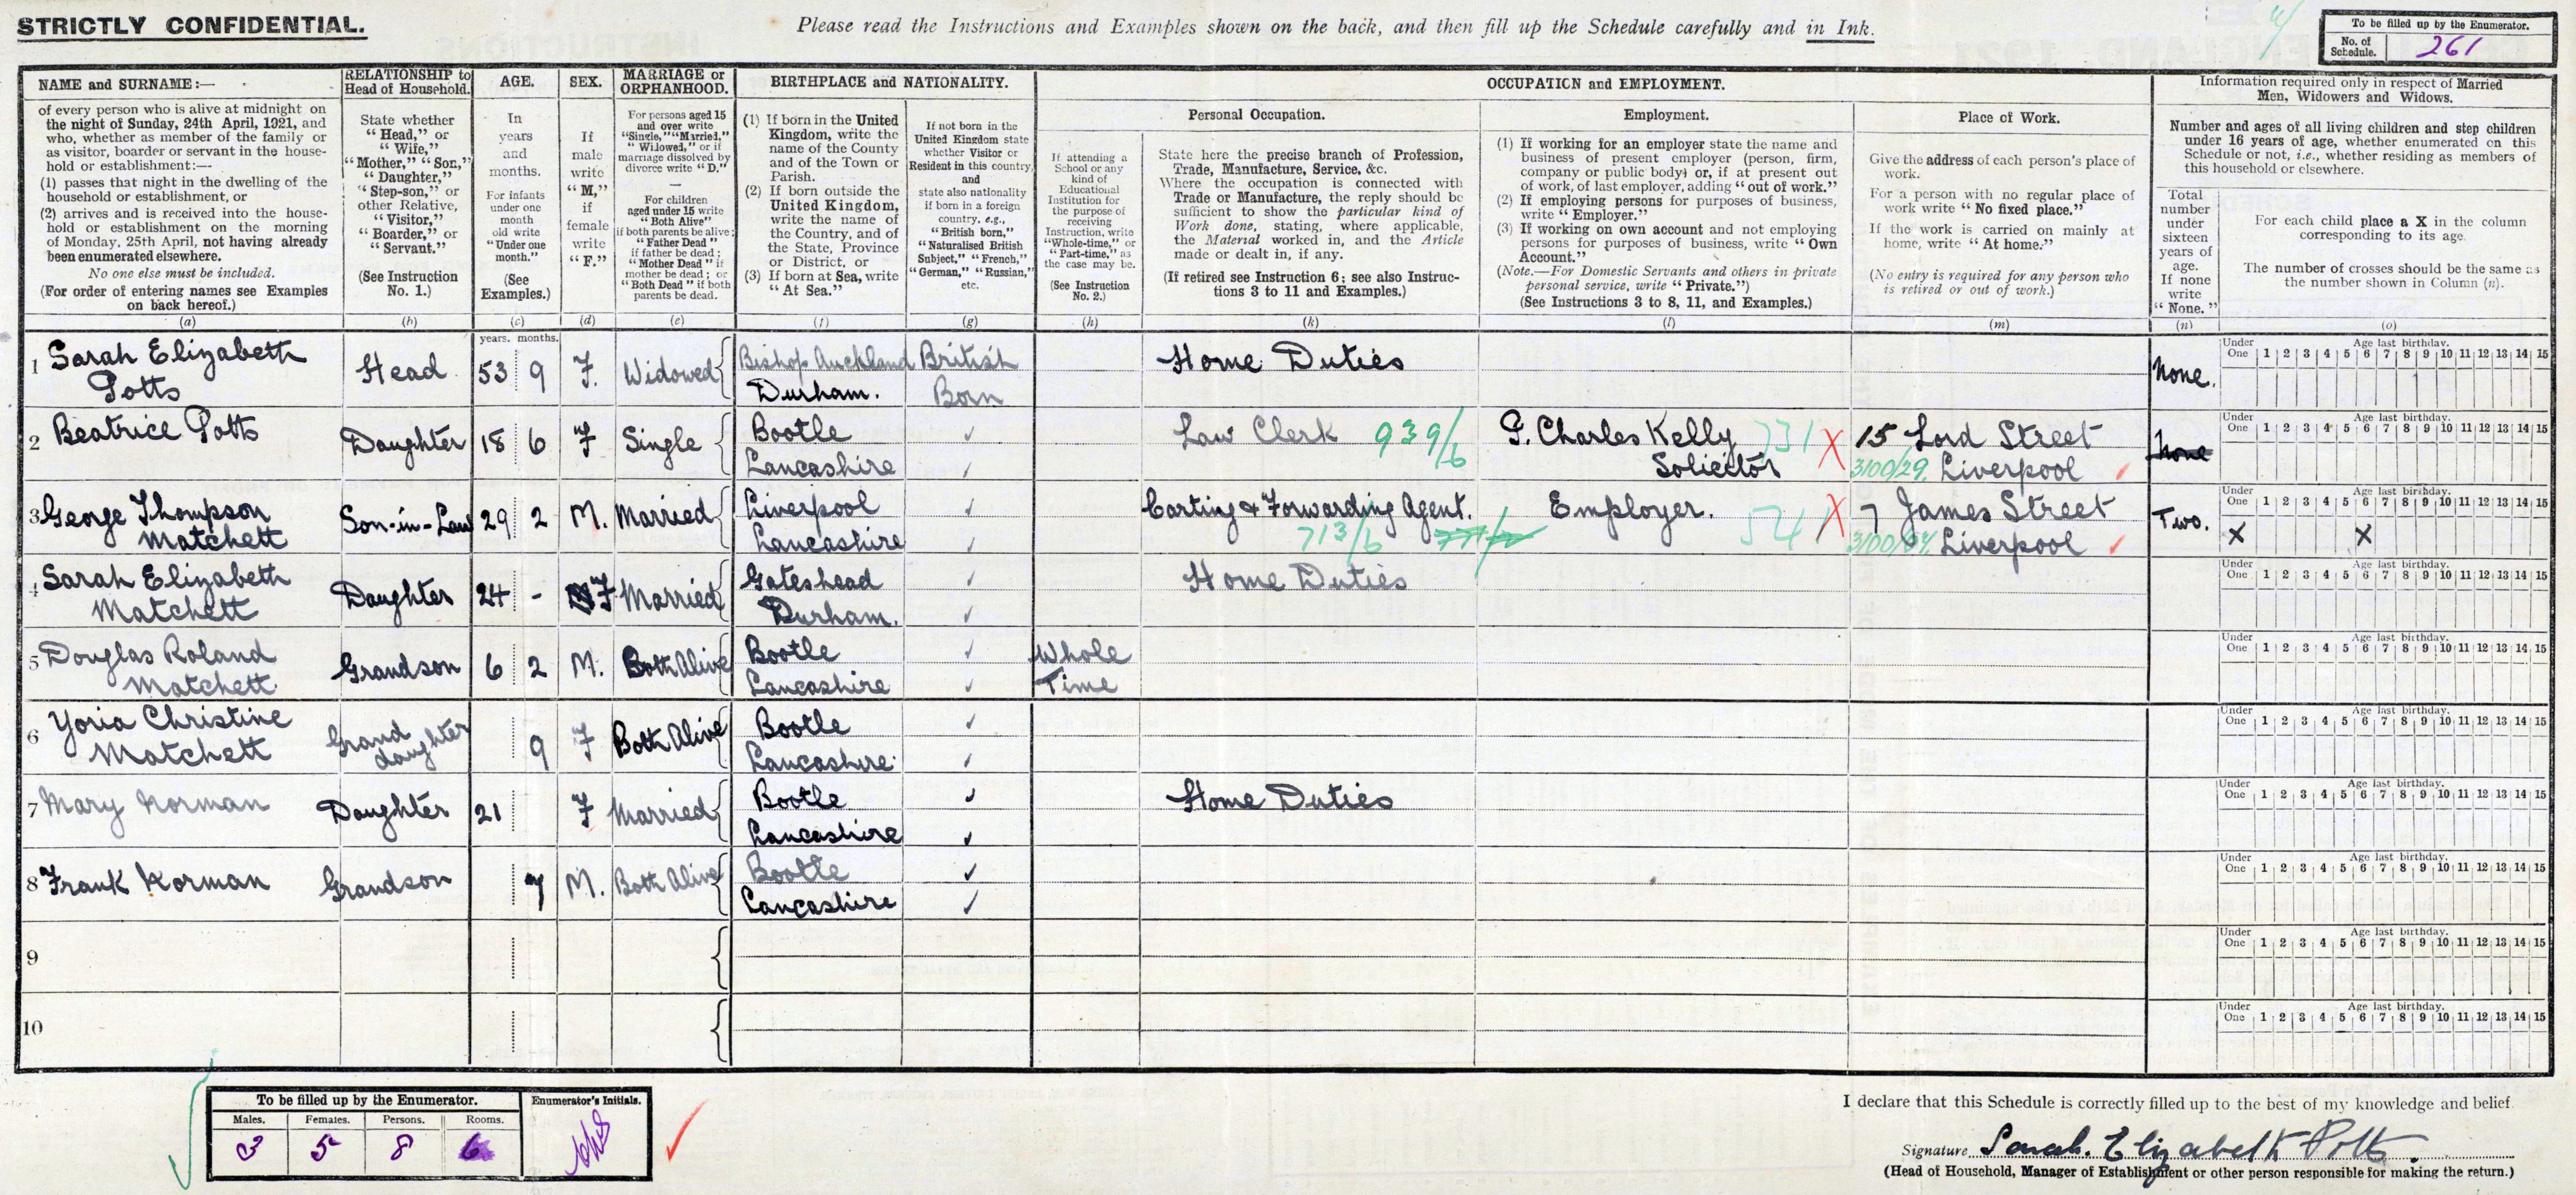 STRICTLY CONFIDENTIAL.
Please read the Instructions and Examples shown on the back, and then fill up the Schedule carefully and in Ink.
To be filled up by the Enumerator.
No. of Schedule. 261
NAME and SURNAME:—
of every person who is alive at midnight on
the night of Sunday, 24th April, 1921, and
who, whether as member of the family or
as visitor, boarder or servant in the house-
hold or establishment:—
(1) passes that night in the dwelling of the
household or establishment, or
(2) arrives and is received into the house-
hold or establishment on the morning
of Monday, 25th April, not having already
been enumerated elsewhere.
No one else must be included.
(For order of entering names see Examples
on back hereof.)
(a)
RELATIONSHIP to
Head of Household.
State whether
"Head," or
"Wife,"
"Mother," "Son,"
"Daughter,"
"Step-son," or
other Relative,
"Visitor,"
"Boarder," or
"Servant."
(See Instruction
No. 1.)
(b)
AGE.
In
years
and
months.
For infants
under one
month
old write
"Under one
month."
(See
Examples.)
(c)
SEX.
If
male
write
"M,"
if
female
write
"F."
(d)
MARRIAGE or
ORPHANHOOD.
For persons aged 15
and over write
"Single," "Married,"
"Widowed," or if
marriage dissolved by
divorce write "D."
—
For children
aged under 15 write
"Both Alive"
if both parents be alive;
"Father Dead"
if father be dead;
"Mother Dead" if
mother be dead; or
"Both Dead" if both
parents be dead.
(e)
BIRTHPLACE and NATIONALITY.
(1) If born in the United
Kingdom, write the
name of the County
and of the Town or
Parish.
(2) If born outside the
United Kingdom,
write the name of
the Country, and of
the State, Province
or District, or
(3) If born at Sea, write
"At Sea."
(f)
If not born in the
United Kingdom state
whether Visitor or
Resident in this country,
and
state also nationality
if born in a foreign
country, e.g.,
"British born,"
"Naturalised British
Subject," "French,"
"German," "Russian,"
etc.
(g)
OCCUPATION and EMPLOYMENT.
If attending a
School or any
kind of
Educational
Institution for
the purpose of
receiving
Instruction, write
"Whole-time," or
"Part-time," as
the case may be.
(See Instruction
No. 2.)
(h)
Personal Occupation.
State here the precise branch of Profession,
Trade, Manufacture, Service, &c.
Where the occupation is connected with
Trade or Manufacture, the reply should be
sufficient to show the particular kind of
Work done, stating, where applicable,
the Material worked in, and the Article
made or dealt in, if any.
(If retired see Instruction 6; see also Instruc-
tions 3 to 11 and Examples.)
(k)
Employment.
(1) If working for an employer state the name and
business of present employer (person, firm,
company or public body) or, if at present out
of work, of last employer, adding "out of work."
(2) If employing persons for purposes of business,
write "Employer."
(3) If working on own account and not employing
persons for purposes of business, write "Own
Account."
(Note.—For Domestic Servants and others in private
personal service, write "Private.")
(See Instructions 3 to 8, 11, and Examples.)
(l)
Place of Work.
Give the address of each person's place of
work.
For a person with no regular place of
work write "No fixed place."
If the work is carried on mainly at
home, write "At home."
(No entry is required for any person who
is retired or out of work.)
(m)
Information required only in respect of Married
Men, Widowers and Widows.
Number and ages of all living children and step children
under 16 years of age, whether enumerated on this
Schedule or not, i.e., whether residing as members of
this household or elsewhere.
Total
number
under
sixteen
years of
age.
If none
write
"None."
(n)
For each child place a X in the column
corresponding to its age.
The number of crosses should be the same as
the number shown in Column (n).
(o)
years. months.
1 Sarah Elizabeth Potts Head 53 9 F. Widowed Bishop Auckland Durham. British Born Home Duties None.
Under One Age last birthday. 1 2 3 4 5 6 7 8 9 10 11 12 13 14 15
2 Beatrice Potts Daughter 18 6 F Single Bootle Lancashire Law Clerk 939/6 G. Charles Kelly Solicitor 731 X 15 Lord Street 3100/29. Liverpool None
Under One Age last birthday. 1 2 3 4 5 6 7 8 9 10 11 12 13 14 15
3 George Thompson Matchett Son-in-Law 29 2 M. Married Liverpool Lancashire Carting & Forwarding Agent. 713/6 Employer. 541 X 7 James Street Liverpool Two.
Under One Age last birthday. 1 2 3 4 5 6 7 8 9 10 11 12 13 14 15
X X
4 Sarah Elizabeth Matchett Daughter 24 - F Married Gateshead Durham. Home Duties
Under One Age last birthday. 1 2 3 4 5 6 7 8 9 10 11 12 13 14 15
5 Douglas Roland Matchett Grandson 6 2 M. Both Alive Bootle Lancashire Whole Time
Under One Age last birthday. 1 2 3 4 5 6 7 8 9 10 11 12 13 14 15
6 Yoria Christine Matchett Grand daughter 9 F Both Alive Bootle Lancashire
Under One Age last birthday. 1 2 3 4 5 6 7 8 9 10 11 12 13 14 15
7 Mary Norman Daughter 21 F Married Bootle Lancashire Home Duties
Under One Age last birthday. 1 2 3 4 5 6 7 8 9 10 11 12 13 14 15
8 Frank Norman Grandson 7 M. Both Alive Bootle Lancashire
Under One Age last birthday. 1 2 3 4 5 6 7 8 9 10 11 12 13 14 15
9
Under One Age last birthday. 1 2 3 4 5 6 7 8 9 10 11 12 13 14 15
10
Under One Age last birthday. 1 2 3 4 5 6 7 8 9 10 11 12 13 14 15
To be filled up by the Enumerator.
Enumerator's Initials.
Males. Females. Persons. Rooms.
3 5 8 6
I declare that this Schedule is correctly filled up to the best of my knowledge and belief.
Signature Sarah. Elizabeth Potts.
(Head of Household, Manager of Establishment or other person responsible for making the return.)